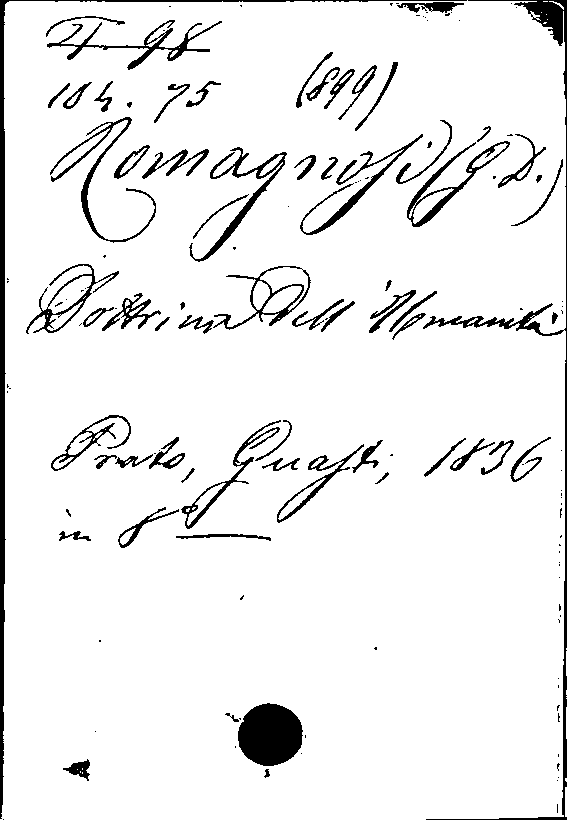 104. 75 (899)
Romagnosi (G. D.)
Dottrina dell'Umanità
Prato, Guasti, 1836
in 8º